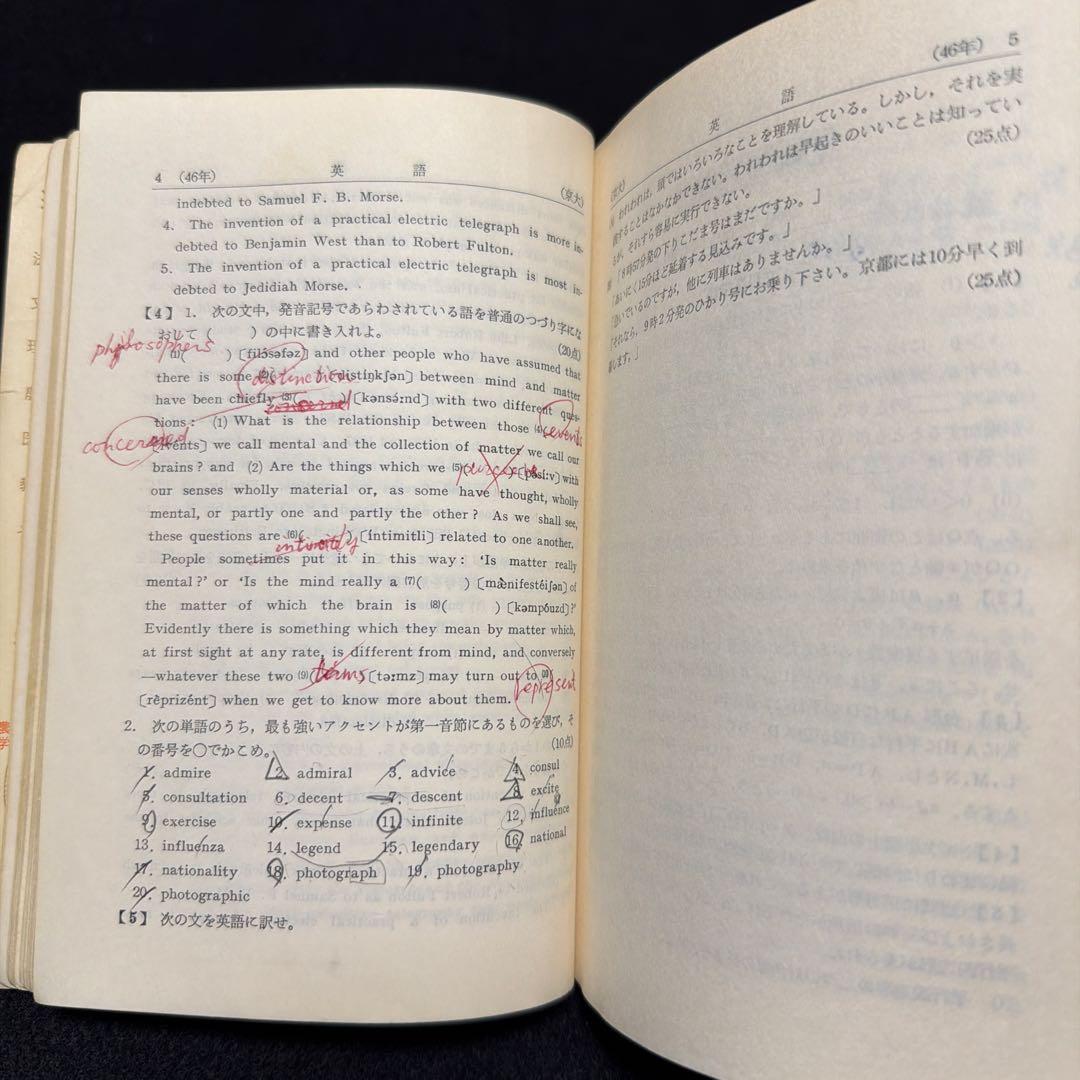 4 (46年) 英語 (京大)
indebted to Samuel F. B. Morse.
4. The invention of a practical electric telegraph is more in-
debted to Benjamin West than to Robert Fulton.
5. The invention of a practical electric telegraph is most in-
debted to Jedidiah Morse.
【4】 1. 次の文中,発音記号であらわされている語を普通のつづり字にな
おして( )の中に書き入れよ。 (20点)
philosophers
(1)( )[filɔ́səfəz] and other people who have assumed that
there is some (2)( distinction )[distíŋkʃən] between mind and matter
have been chiefly (3)( concerned )[kənsə́:nd] with two different ques-
tions: (1) What is the relationship between those (4)( events
concerned
)[ivénts] we call mental and the collection of matter we call our
brains? and (2) Are the things which we (5)( )[pəsí:v] with
our senses wholly material or, as some have thought, wholly
mental, or partly one and partly the other? As we shall see,
these questions are (6)( )[íntimitli] related to one another.
People sometimes put it in this way: ‘Is matter really
mental?’ or ‘Is the mind really a (7)( )[mæ̀nifestéiʃən] of
the matter of which the brain is (8)( )[kəmpóuzd]?’
Evidently there is something which they mean by matter which,
at first sight at any rate, is different from mind, and conversely
—whatever these two (9)( terms )[tə:mz] may turn out to (10)( represent )
[rèprizént] when we get to know more about them.
2. 次の単語のうち,最も強いアクセントが第一音節にあるものを選び,そ
の番号を○でかこめ。 (10点)
1. admire 2. admiral 3. advice 4. consul
5. consultation 6. decent 7. descent 8. excite
9. exercise 10. expense 11. infinite 12. influence
13. influenza 14. legend 15. legendary 16. national
17. nationality 18. photograph 19. photography
20. photographic
【5】 次の文を英語に訳せ。
(46年) 5
英語
(京大)
われわれは,頭ではいろいろなことを理解している。しかし,それを実
行することはなかなかできない。われわれは早起きのいいことは知ってい
るが,それすら容易に実行できない。 (25点)
「8時57分発の下りこだま号はまだですか。」
「あいにく15分ほど延着する見込みです。」
「急いでいるのですが,他に列車はありませんか。」
「それなら,9時2分発のひかり号にお乗り下さい。京都には10分早く到
着します。」 (25点)